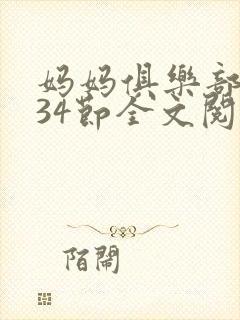 妈妈俱樂部
34节全文閱
陌鬧